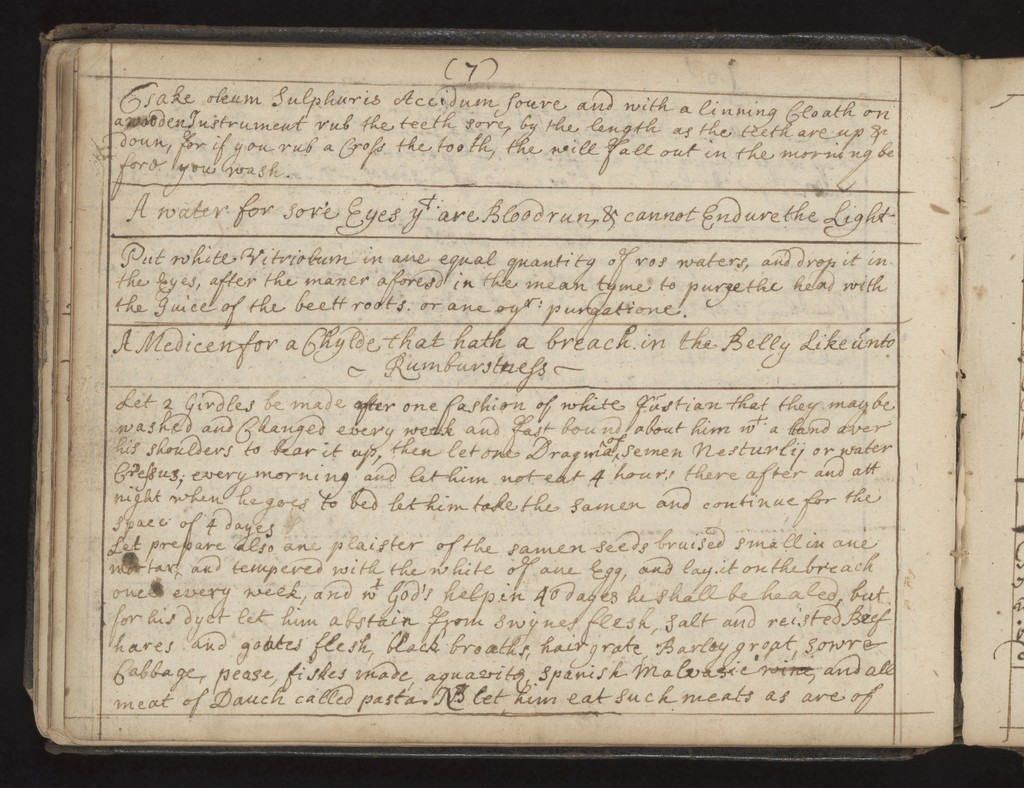 (7)
Take oleum Sulphuris Accidum soure and with a linning Cloath on
a wooden Instrument rub the teeth sore, by the length as the teeth are up &
doun, for if you rub a Cross the tooth, the will fall out in the morning be
fore you wash.
A water for sore Eyes yt are Bloodrun, & cannot Endure the Light
Put white Vitriolum in ane equal quantity of ros waters, and drop it in
the Eyes, after the maner aforesd in the mean tyme to purge the head with
the Juice of the beett roots. or ane oyr: purgatione.
A Medicen for a Chylde that hath a breach in the Belly Like unto
~ Rumburstness ~
Let 2 Girdles be made after one fashion of white fustian that they may be
washed and Changed every week and fast bound about him wt a band aver
his shoulders to bear it up, then let one Dragma of Semen Nesturlij or water
Cressus, every morning and let him not eat 4 hours there after and att
night when he goes to bed let him take the samen and continue for the
space of 4 dayes
Let prepare also ane plaister of the samen seeds bruised small in ane
mortar, and tempered with the white of ane Egg, and lay it on the breach
once every week, and wt God's help in 40 dayes he shall be healed, but
for his dyet let him abstain from swynes flesh, salt and reisted Beef
hares and goates flesh, black broaths, hair grate, Barley groat, sowre
Cabbage, pease, fishes made, aquavitq, spanish Malvasie wine, and all
meat of Dauch called pasta. NB let him eat such meats as are of